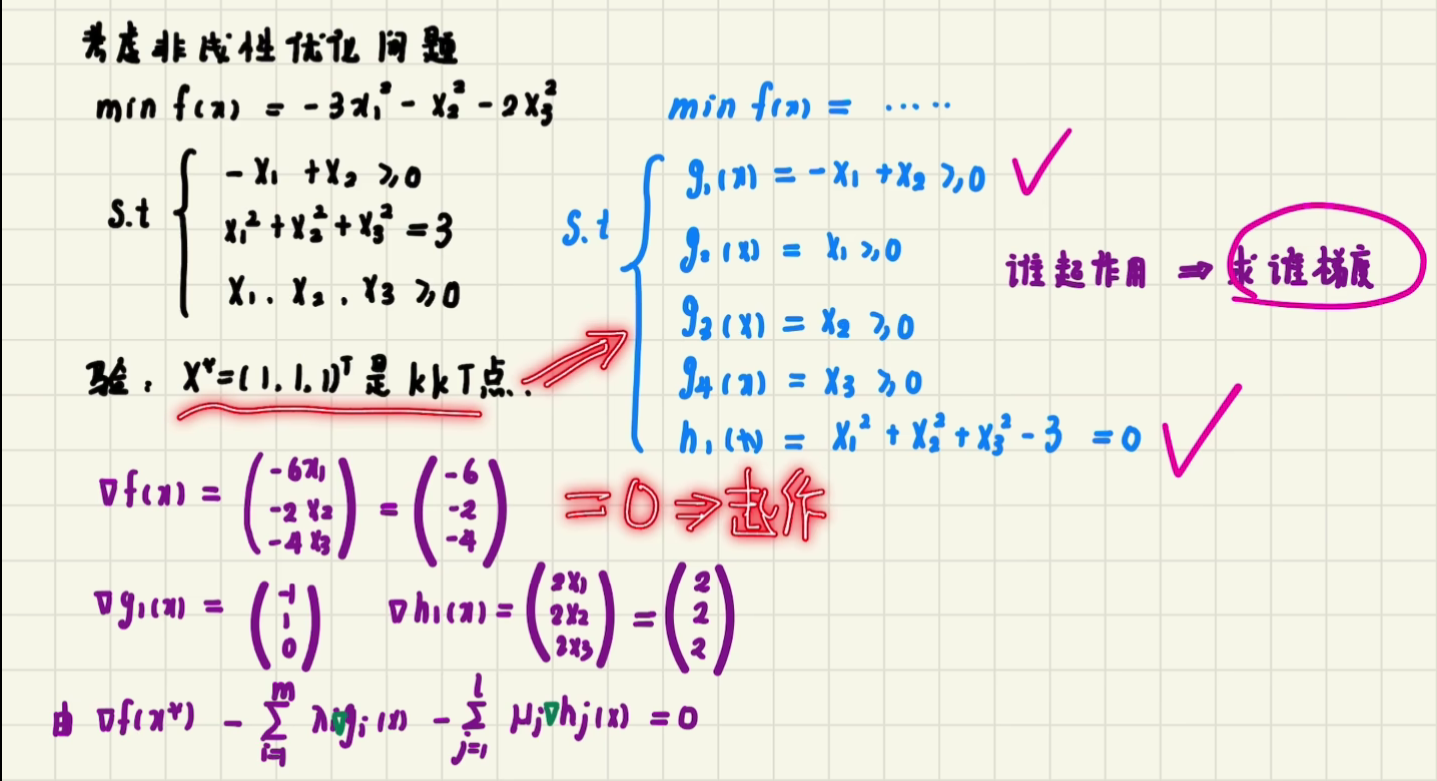 考虑非线性优化问题
min f(x) = -3x₁² - x₂² - 2x₃²
s.t { -x₁ + x₂ ≥ 0
x₁² + x₂² + x₃² = 3
x₁, x₂, x₃ ≥ 0
验: X*=(1, 1, 1)ᵀ 是 kkT点.
min f(x) = .....
s.t { g₁(x) = -x₁ + x₂ ≥ 0 ✓
g₂(x) = x₁ ≥ 0
g₃(x) = x₂ ≥ 0
g₄(x) = x₃ ≥ 0
h₁(x) = x₁² + x₂² + x₃² - 3 = 0 ✓
谁起作用 ⇒ 求谁梯度
= 0 ⇒ 起作
∇f(x) = (-6x₁, -2x₂, -4x₃) = (-6, -2, -4)
∇g₁(x) = (-1, 1, 0) ∇h₁(x) = (2x₁, 2x₂, 2x₃) = (2, 2, 2)
由 ∇f(x*) - ∑ᵢ₌₁ᵐ λᵢ∇gᵢ(x) - ∑ⱼ₌₁ˡ μⱼ∇hⱼ(x) = 0